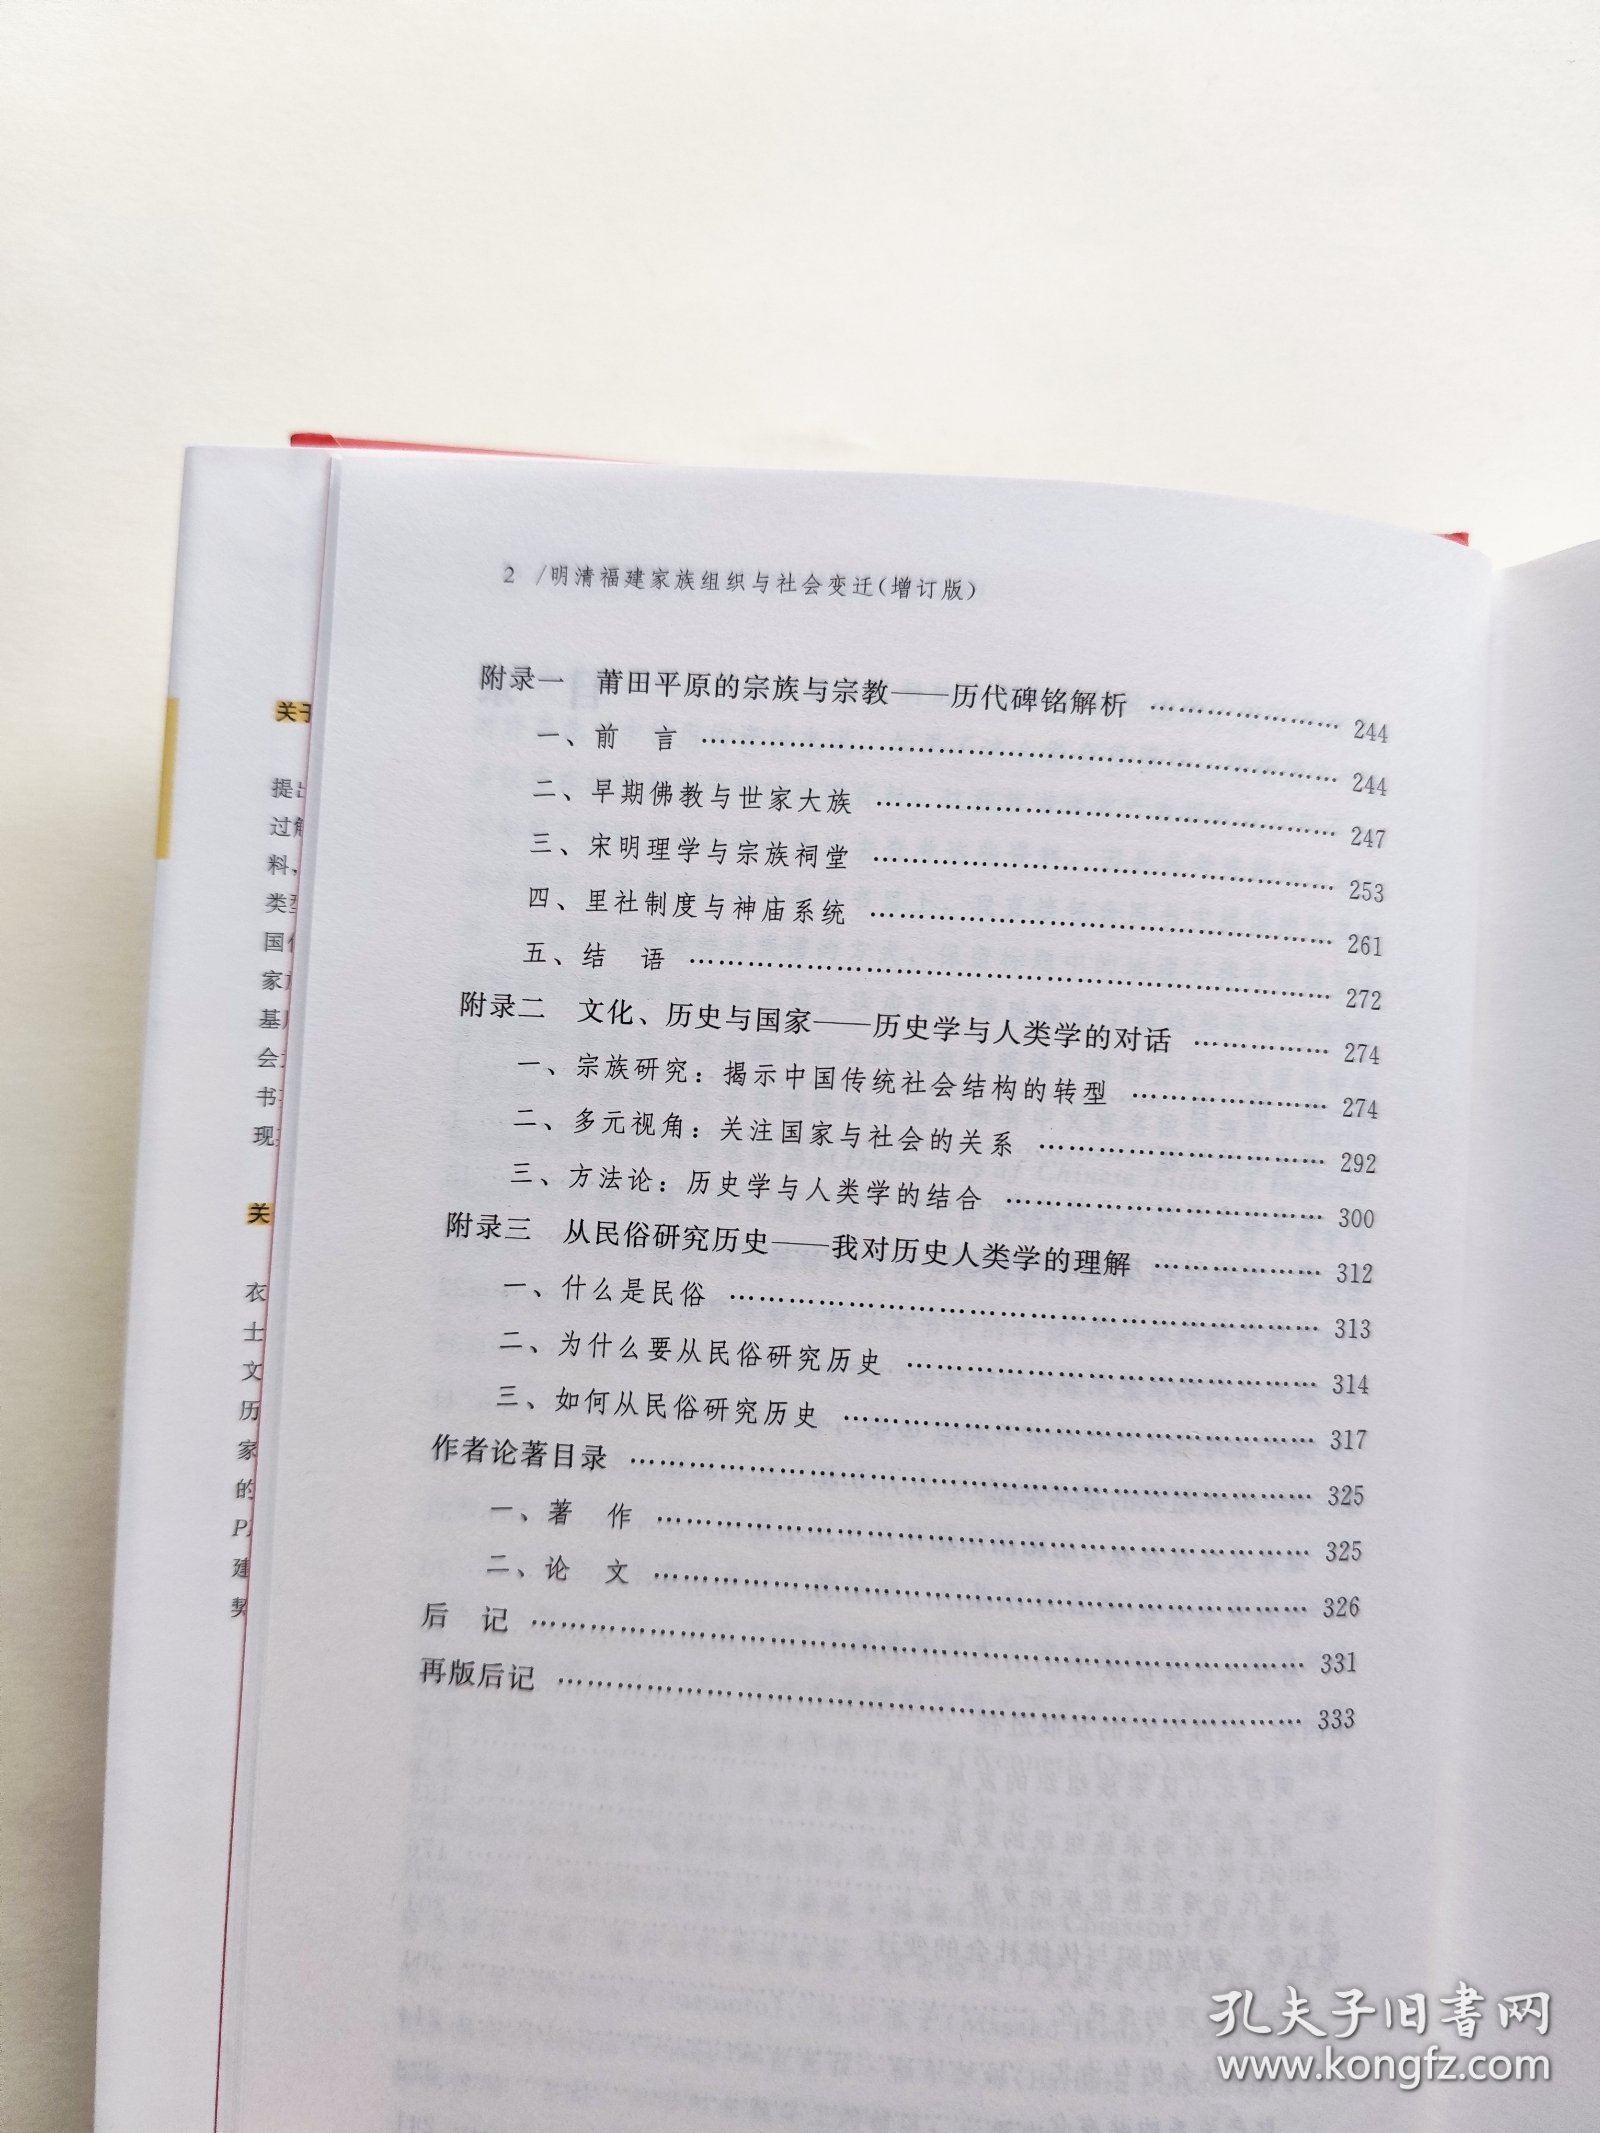 2 /明清福建家族组织与社会变迁(增订版)
附录一 莆田平原的宗族与宗教——历代碑铭解析 …………………… 244
一、前 言 …………………………………………………… 244
二、早期佛教与世家大族 ………………………………………… 247
三、宋明理学与宗族祠堂 ………………………………………… 253
四、里社制度与神庙系统 ………………………………………… 261
五、结 语 …………………………………………………… 272
附录二 文化、历史与国家——历史学与人类学的对话 …………… 274
一、宗族研究：揭示中国传统社会结构的转型 ………………… 274
二、多元视角：关注国家与社会的关系 ………………………… 292
三、方法论：历史学与人类学的结合 …………………………… 300
附录三 从民俗研究历史——我对历史人类学的理解 ……………… 312
一、什么是民俗 …………………………………………………… 313
二、为什么要从民俗研究历史 …………………………………… 314
三、如何从民俗研究历史 ………………………………………… 317
作者论著目录 ……………………………………………………… 325
一、著 作 …………………………………………………… 325
二、论 文 …………………………………………………… 326
后 记 ……………………………………………………………… 331
再版后记 …………………………………………………………… 333
关于
提出
过解
料，
类型
国
家
基
会
书
现
关
衣
士
文
历
家
的
建
孔夫子旧书网
www.kongfz.com